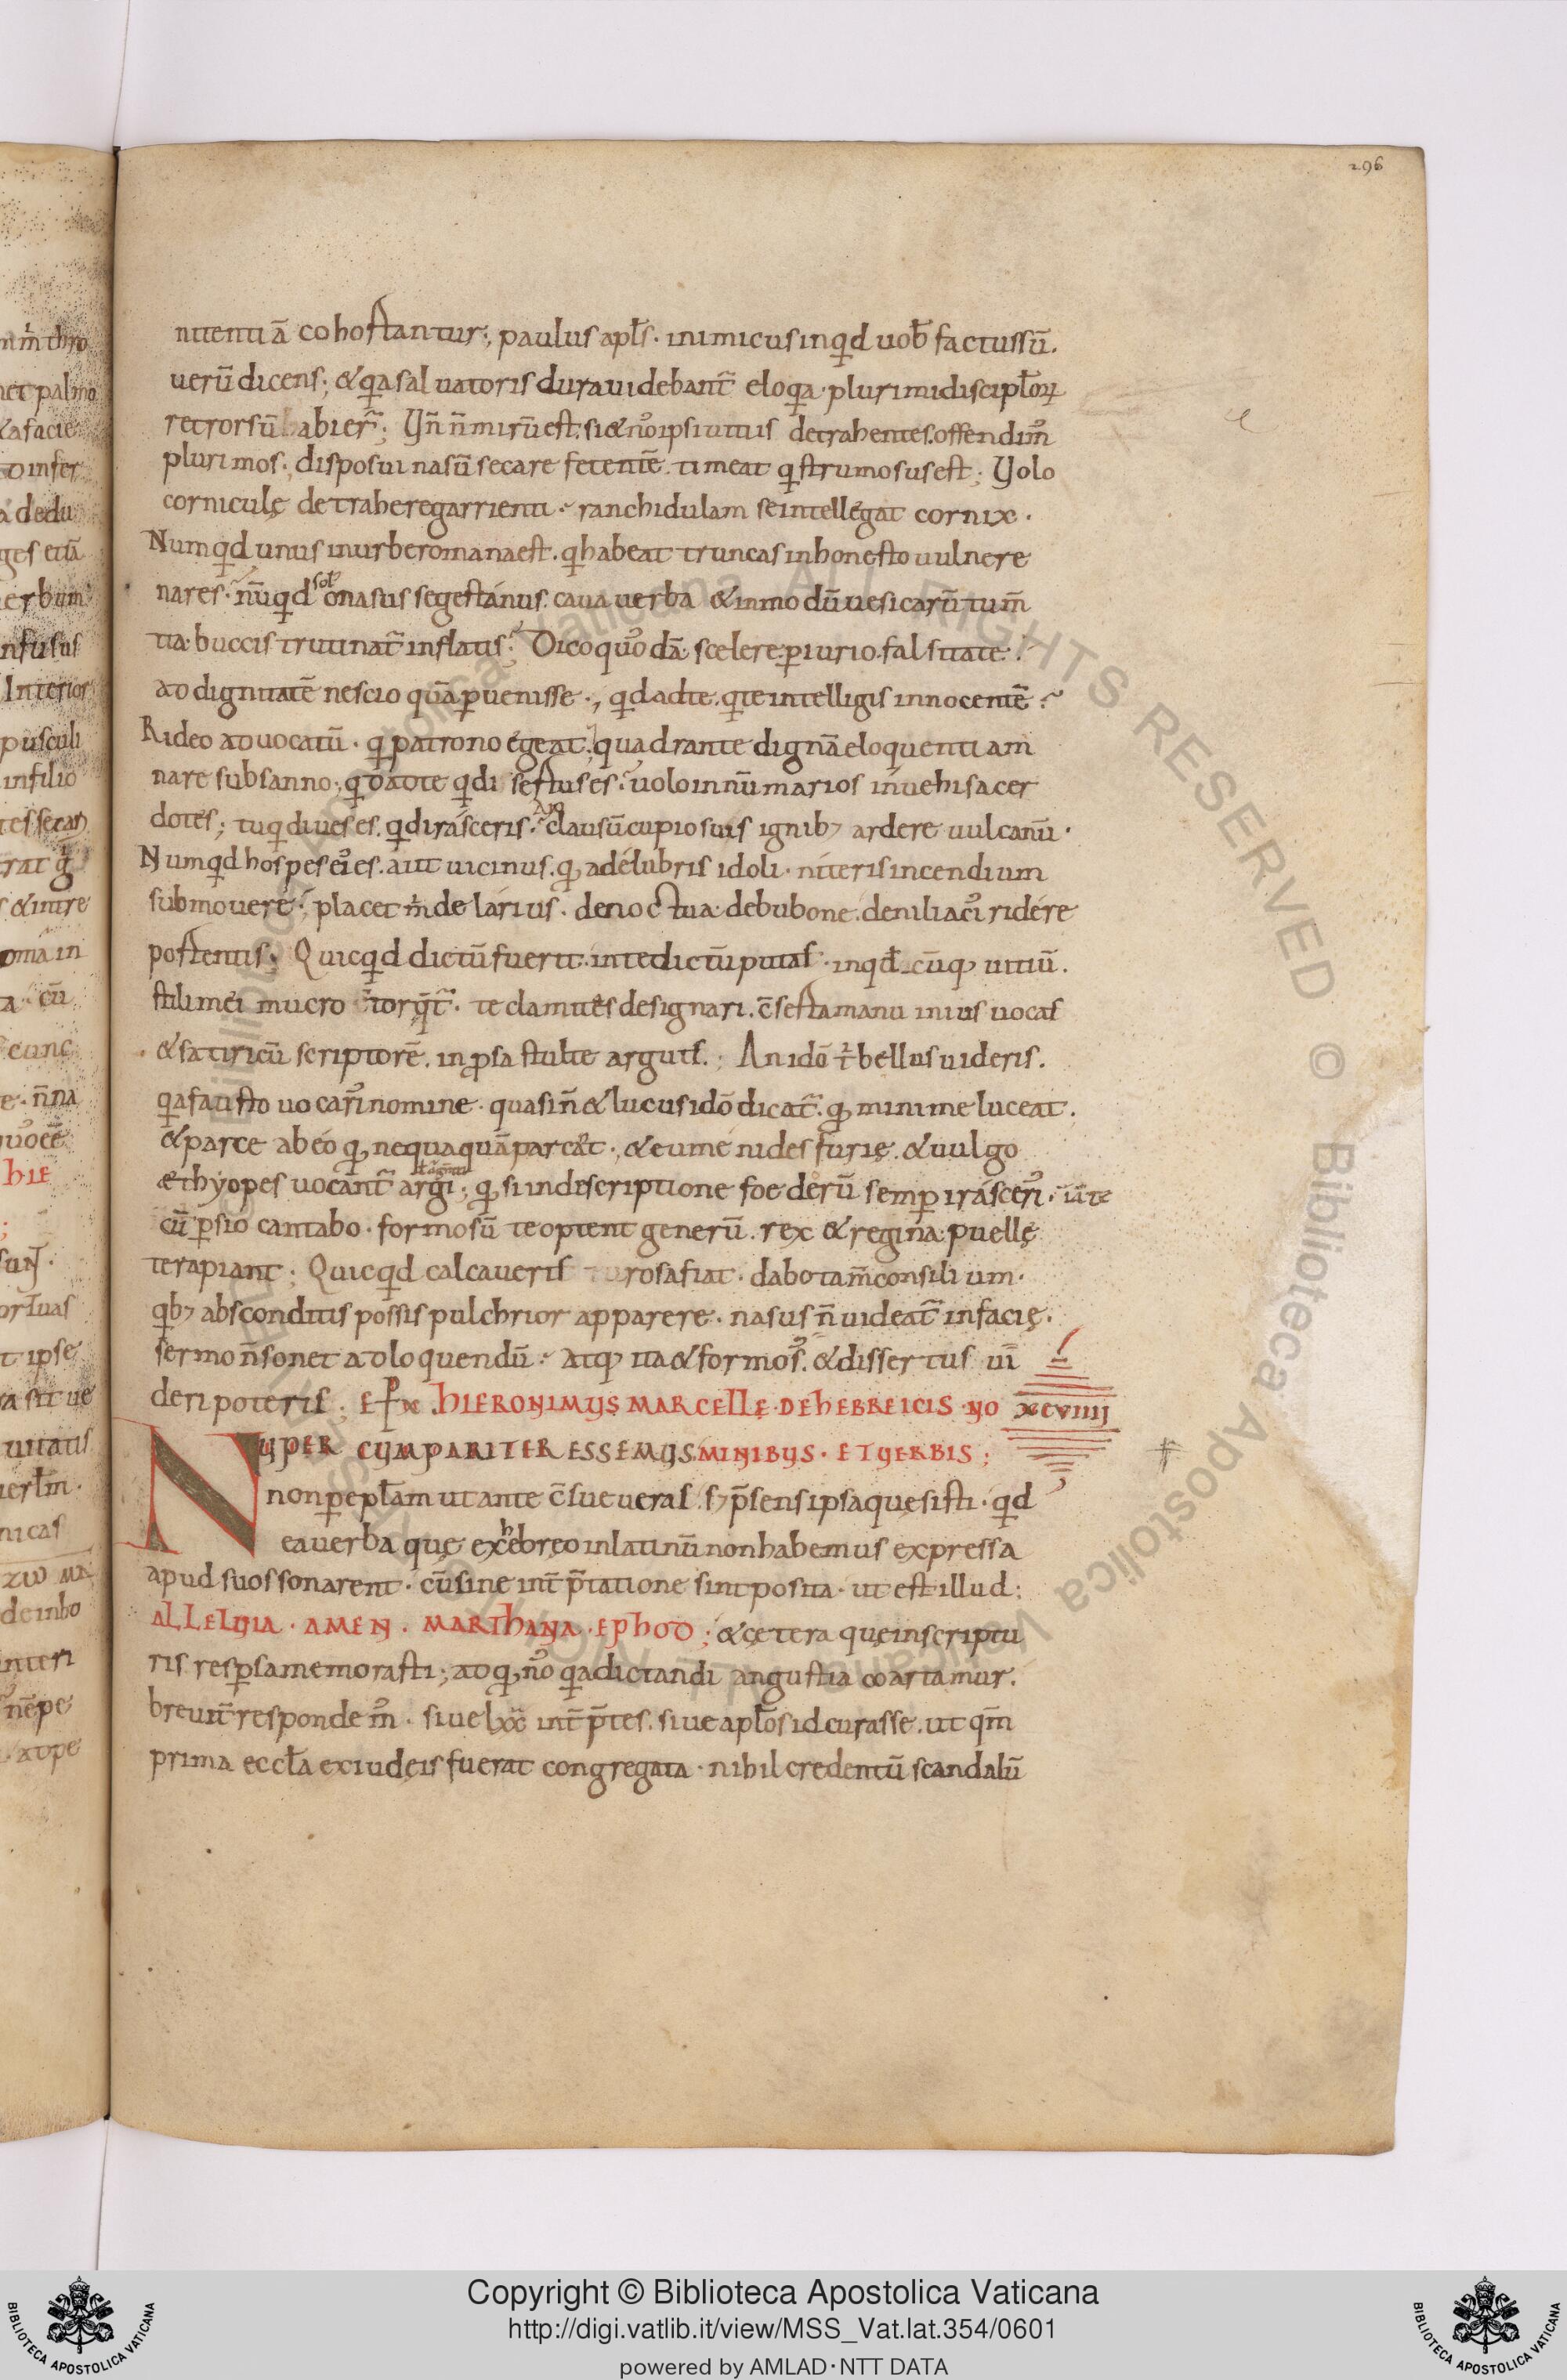 296
nitenti ā cohostantur; paulus apl̄s · inimicus inqd uob̄ factus sū.
uerū dicens; & qa saluatoris dura uidebant̄ eloqa · plurimi discipl̄oꝝ
retrorsū abier̄; Vn̄ n̄ mirū est, si & nō ipsi uitiis detrahentes offendim̄
plurimos; disposui nasū secare fetentē. timeat q strumosus est; Volo
corniculę detrahere garrienti · ranchidulam se intellégat cornix ·
Numqd unus in urbe romana est. q habeat truncas inhonesto uulnere
nares · nūqd sol̄ onasus segestánus. caua uerba & in modū uesicarū tum̄
tia · buccis trutinat̄ inflatis · Dico quodā · scelere · ꝑiurio · falsitate ·
ad dignitatē nescio quā ꝑuenisse · qd ad te · q te intelligis innocentē
Rideo aduocatū · q patrono égeat; quadrante dignā eloquentiam
nare subsanno; qd ad te q disertus es · uolo in nūmarios ínuehi sacer
dotes; tu q diues es. qd irásceris · clausū cupio suis ignibꝫ ardere uulcanū ·
Numqd hospes ei es. aut uicinus. q, a délubris idoli · níteris incendium
submouere · placet m̄ de lárius · de noctua · de bubone. de niliaci ridére
postentis; Quicqd dictū fuerit. in te dictū putas · in qd cūq, uitiū.
stili mei mucro torqt̄ · te clamités designari. c̄serta manu in ius uocas
& satiricū scriptorē. in ꝓsa stulte arguis; An idō t̄ bellus uideris.
qa fausto uocaris nomine · quasi n̄ & lucus idō dicat̄ · q, minime luceat.
& parce ab eo q, nequaquā parcat · & eumenides furię. & uulgo
ethyopes uocant̄ argi; q, si in descriptione foederū semꝑ irásceris · iā te
cū ꝑsio cantabo · formosū te optent generū. rex & regina · puellę
te rapiant; Quicqd calcaueris rosa fiat · dabo tam̄ consilium ·
qbꝫ absconditis possis pulchrior apparere · nasus n̄ uideat̄ in facię.
sermo n̄ sonet ad loquendū · atq, ita & formos & dissertus ui
deri poteris; HIERONIMUS MARCELLĘ · DE HEBREICIS · NO XCVIIII
NUPER CUM PARITER ESSEMUS MINIBUS · ET UERBIS;
non ꝑ epl̄am ut ante c̄sueueras. sꝫ p̄sens ipsa quęsisti · qd
ea uerba quę ex hebręo in latinū non habemus expressa
apud suos sonarent · cū sine int̄p̄tatione sint posita · ut est illud:
ALLELUIA · AMEN · MARTHANA · EPHOD; & cętera quę in scriptu
ris resꝑsa memorasti; ad q, nō qa dictandi angustia coartamur.
breuit̄ respondem̄ · siue lxx int̄p̄tes. siue apl̄os id curasse. ut qm̄
prima eccl̄a ex iudęis fuerat congregata · nihil credentū scandalū
Copyright © Biblioteca Apostolica Vaticana
http://digi.vatlib.it/view/MSS_Vat.lat.354/0601
powered by AMLAD·NTT DATA
BIBLIOTECA APOSTOLICA VATICANA
BIBLIOTECA APOSTOLICA VATICANA